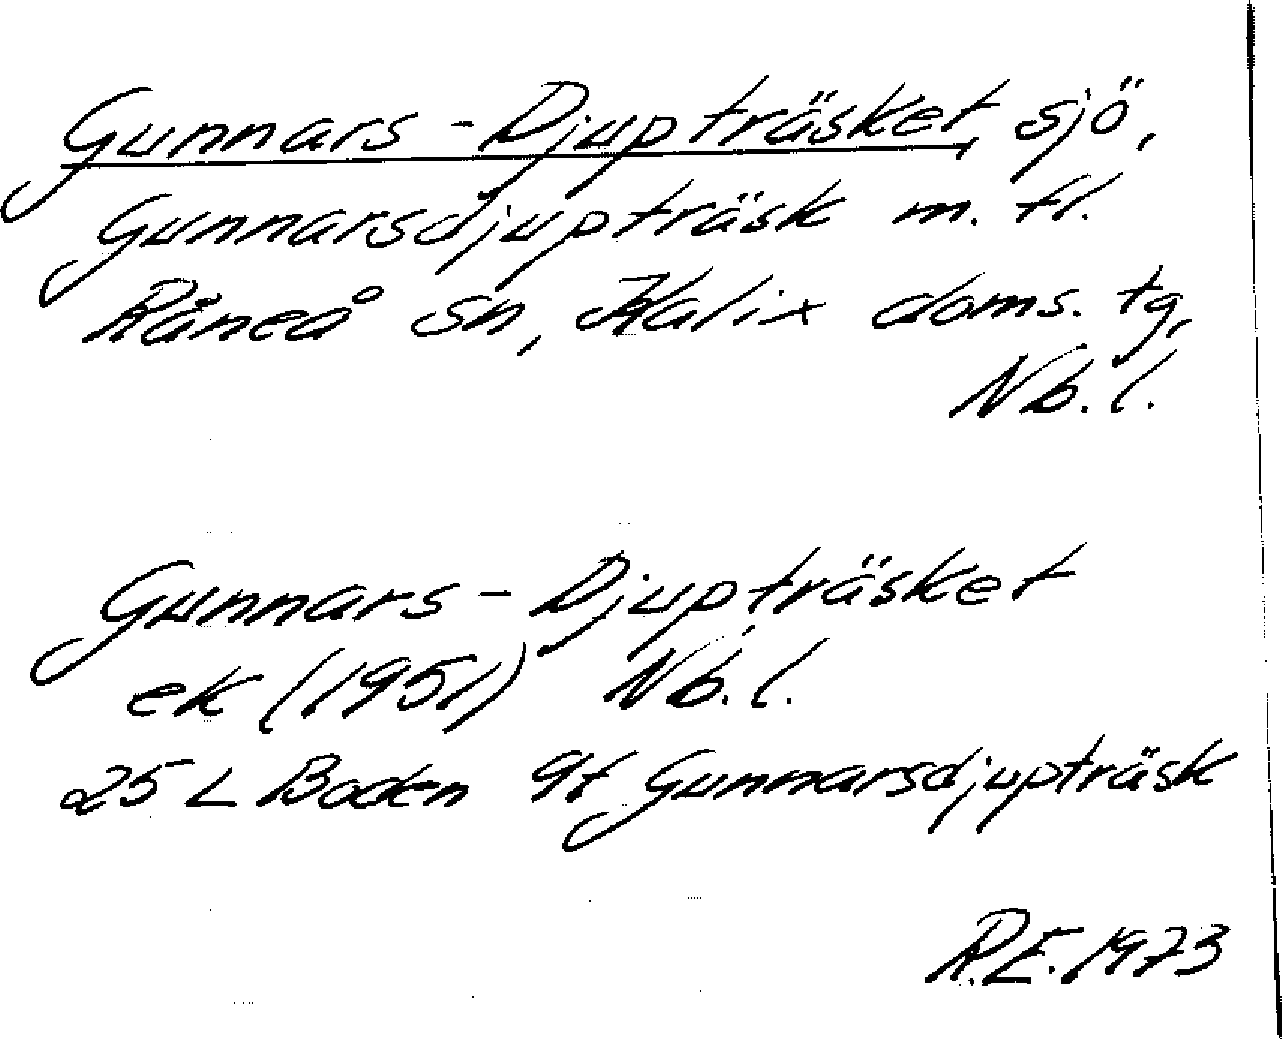 Gunnars-Djupträsket, sjö,
Gunnarsdjupträsk m. fl.
Råneå sn, Kalix doms. tg,
Nb. l.
Gunnars-Djupträsket
ek (1951) Nb. l.
25 L Boden 9f Gunnarsdjupträsk
R.E. 1973